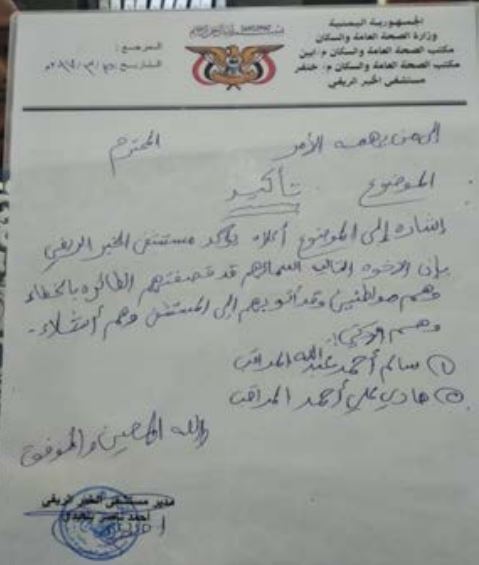 الجمهورية اليمنية
وزارة الصحة العامة والسكان
مكتب الصحة العامة والسكان م/ابين
مكتب الصحة العامة والسكان م. خنفر
مستشفى الخبر الريفي
المرجع :
التاريخ :
الى من يهمه الأمر المحترم
الموضوع تأكيد
اشارة إلى الموضوع أعلاه يؤكد مستشفى الخبر الريفي
بان الاخوه التاليه اسمائهم قد قصفتهم الطائره بالخطاء
وهم مواطنين وقد أتو بهم إلى المستشفى وهم أشلاء -
وهم كالآتي:
١) سالم أحمد عبدالله المراقب
٢) هادي علي أحمد المراقب
والله المعين والموفق
مدير مستشفى الخبر الريفي
أحمد ناصر